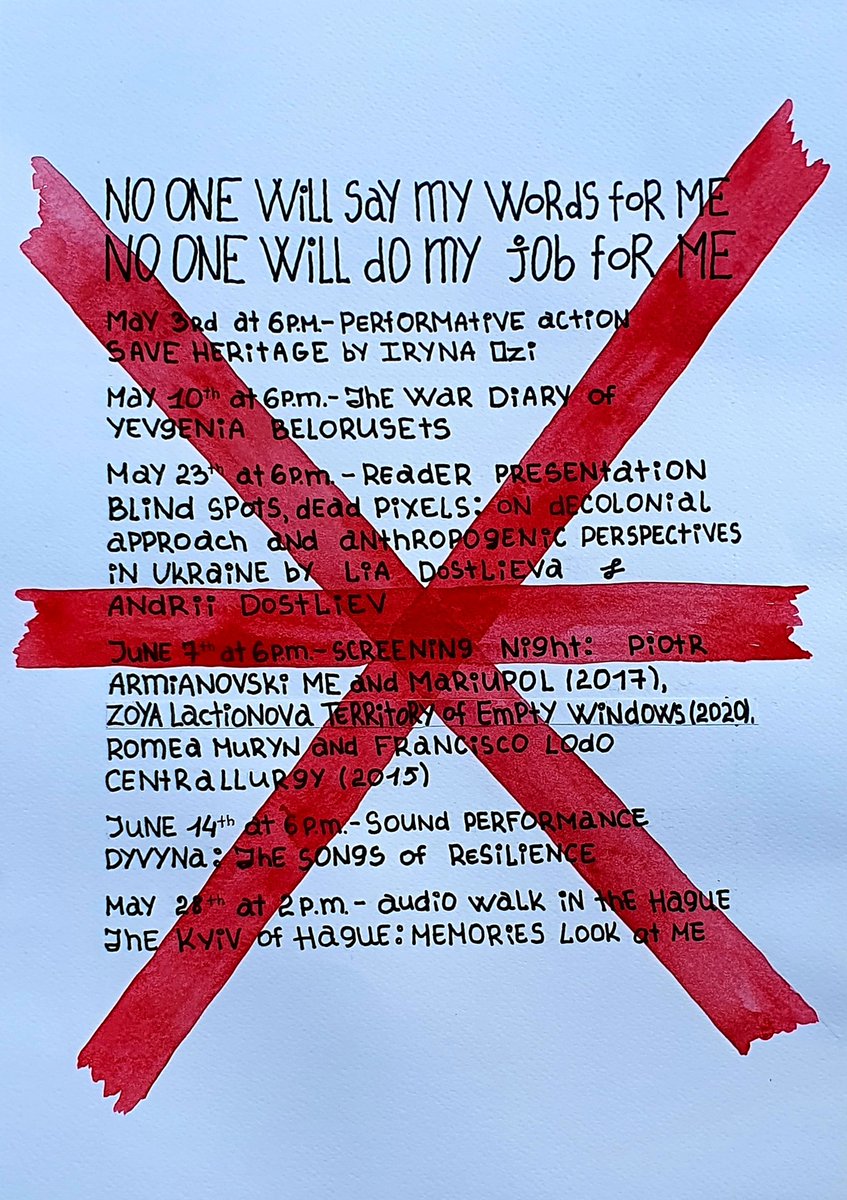 NO ONE WiLL SaY mY WoRdS foR ME
NO ONE WiLL dO mY job foR ME
MaY 3Rd at 6P.M.- PERfORMAtiVE action
SAVE HERitAGE by IRYNA Ozi
MaY 10th at 6p.m.- ThE WaR DiARY of
YEVgENiA BELORUSEtS
MaY 23th at 6p.m. - REAdER PRESENtatiON
BLiNd SPOtS, dEAd PiXELS: ON dECOLONiAL
aPPROach aNd aNthROPOgENiC PERSPECtiVES
iN UKRAiNE by LiA DOStLiEVa &
ANdRii DOStLiEV
JUNE 7th at 6p.m.- SCREENiNg Night: PiOtR
ARMiANOVSKi ME and MaRiUPOL (2017),
ZOYA LactiONOVa TERRitORY of EmPtY WiNdOWS (2020),
ROMEA MURYN and FRANCiSCO LOdO
CENtRALLURgY (2015)
JUNE 14th at 6 p.m.- SOUNd PERfORMANCE
DYVYNa: ThE SONgS of RESiLiENCE
MaY 28th at 2 p.m. - audio walk iN thE HagUE
ThE KYiV of HagUE: MEMORiES LOOK at ME